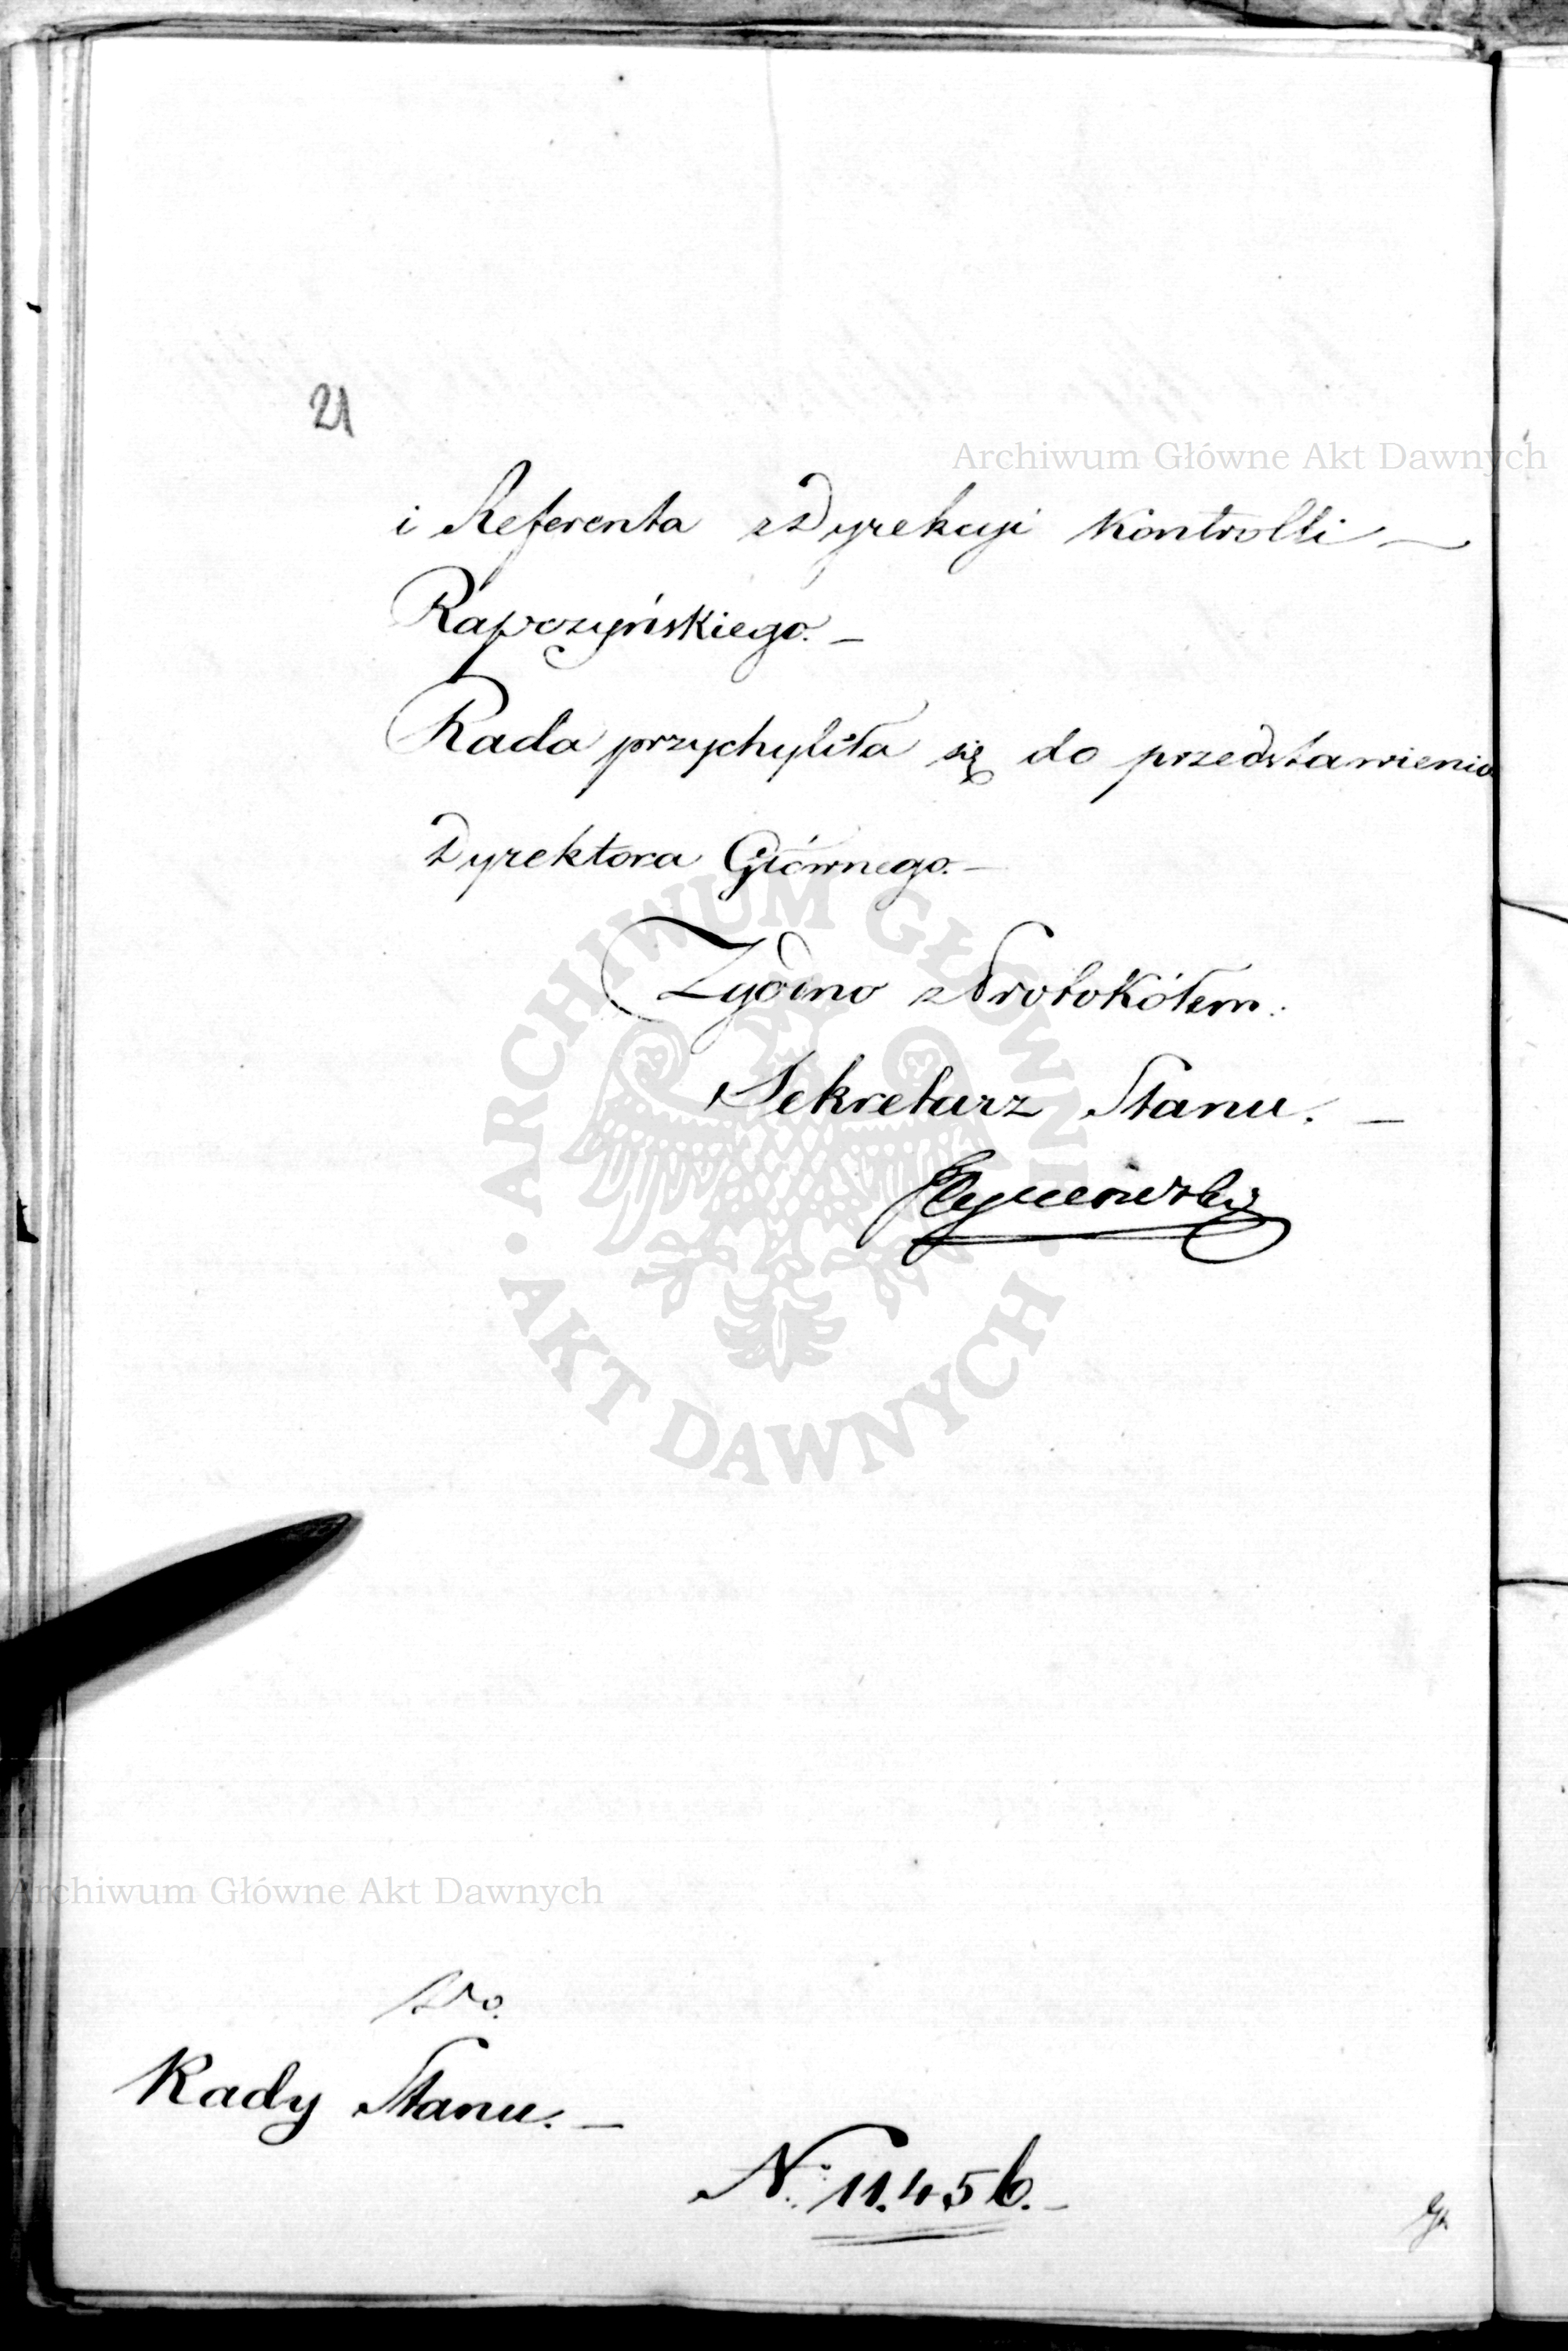 21
Archiwum Główne Akt Dawnych
i Referenta z Dyrekcyi Kontrolli —
Rapczyńskiego. —
Rada przychyliła się do przedstawienia
Dyrektora Głównego. —
Zgodno z Protokółem.
Sekretarz Stanu. —
ARCHIWUM GŁÓWNE
· AKT DAWNYCH ·
Archiwum Główne Akt Dawnych
Do
Rady Stanu. —
No 11.456. —